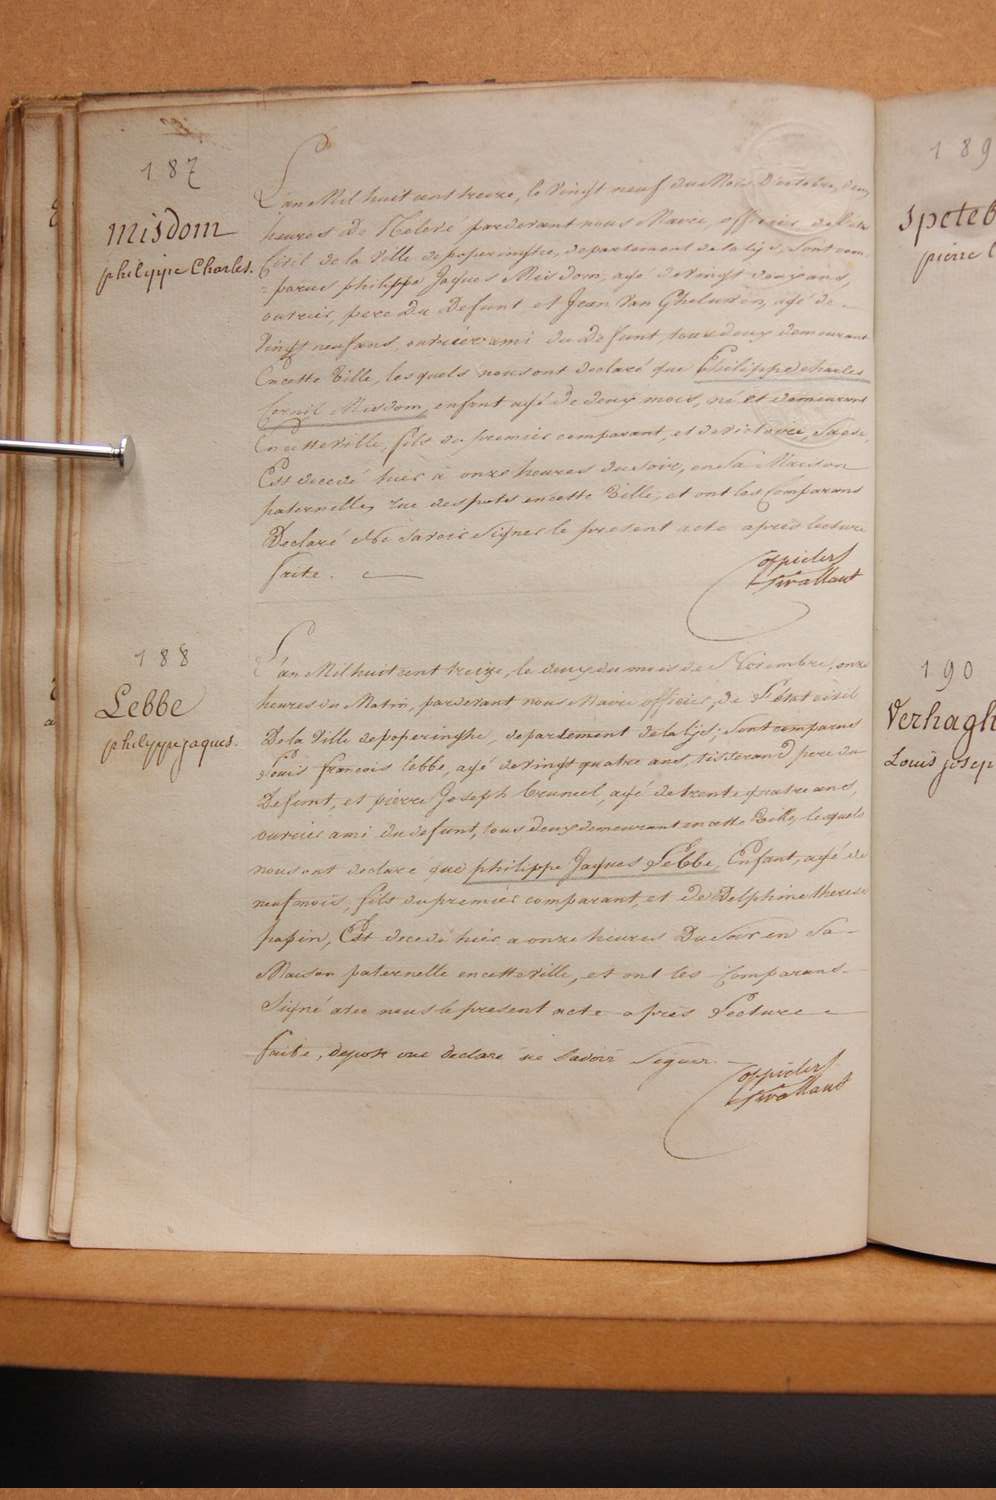 187
misdom
philippe Charles.
L'an Mil huit cent treize, le vingt neuf du Mois D'octobre, deux
heures De Relevé pardevant nous Maire, officier de l'etat
Civil de la Ville de poperinghe, departement de la lijs, sont com-
=parus philippe Jaques Misdom, agé de vingt deux ans,
ouvrier, pere Du Defunt, et Jean Van Gheluwen, agé de -
Vingt neuf ans, ouvrier ami du Defunt, tous deux demeurant
En cette Ville, les quels nous ont declaré que Philippe charles
Cornil Misdom, enfant agé De deux mois, né et demeurant
En cette ville, fils du premier comparant, et de victoire
Est decedé hier à onze heures du soir, en sa Maison
paternelle, rue des pots en cette Ville, et ont les Comparans
Declaré de ne Savoir Signer le present acte après lecture
faite.
188
Lebbe
philippe jaques.
L'an Mil huit cent treize, le deux du mois de Novembre, onze
heures du Matin, pardevant nous Maire officier, de L'état civil
De la Ville de poperinghe, departement de la lijs, sont comparus
Louis francois Lebbe, agé de vingt quatre ans, tisserand pere du
Defunt, et pierre Joseph Cruneel, agé de trente quatre ans,
ouvrier ami du defunt, tous deux demeurant en cette Ville, lesquels
nous ont declare que philippe Jaques Lebbe, Enfant, agé de
neuf mois, fils du premier comparant, et de Delphine therese
papin, Est decedé hier a onze heures Du soir en sa -
Maison paternelle en cette ville, et ont les Comparans -
Signé avec nous le present acte après Lecture
faite, declare ne Savoir Signer. -
189
speteb
pierre
190
Verhagh
Louis josep